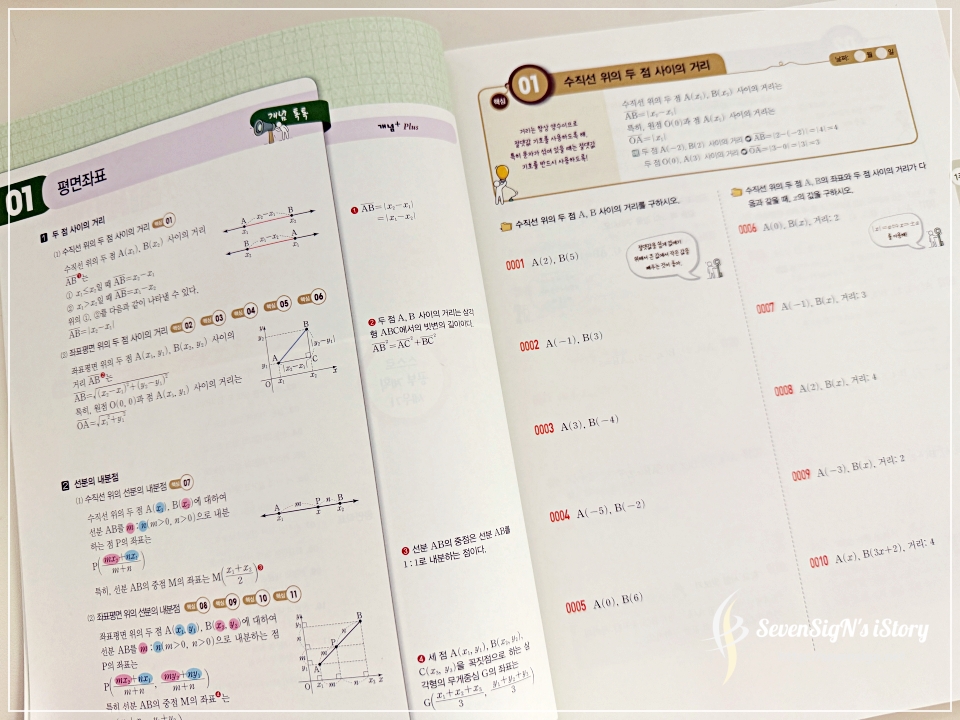 개념 톡톡
01 평면좌표
1 두 점 사이의 거리
(1) 수직선 위의 두 점 사이의 거리 핵심 01
수직선 위의 두 점 A(x₁), B(x₂) 사이의 거리
AB❶는
① x₁≤x₂일 때 AB=x₂-x₁
② x₁>x₂일 때 AB=x₁-x₂
위의 ①, ②를 다음과 같이 나타낼 수 있다.
AB=|x₂-x₁|
A x₂-x₁ B
x₁ x₂
B x₁-x₂ A
x₂ x₁
(2) 좌표평면 위의 두 점 사이의 거리 핵심 02 핵심 03 핵심 04 핵심 05 핵심 06
좌표평면 위의 두 점 A(x₁, y₁), B(x₂, y₂) 사이의
거리 AB❷는
AB=√(x₂-x₁)²+(y₂-y₁)²
특히, 원점 O(0, 0)과 점 A(x₁, y₁) 사이의 거리는
OA=√x₁²+y₁²
y
y₂ B
|y₂-y₁|
y₁ A C
|x₂-x₁|
O x₁ x₂ x
2 선분의 내분점
(1) 수직선 위의 선분의 내분점 핵심 07
수직선 위의 두 점 A(x₁), B(x₂)에 대하여
선분 AB를 m:n(m>0, n>0)으로 내분
하는 점 P의 좌표는
P(mx₂+nx₁/m+n)
특히, 선분 AB의 중점 M의 좌표는 M(x₁+x₂/2)❸
A m P n B
x₁ x x₂
(2) 좌표평면 위의 선분의 내분점 핵심 08 핵심 09 핵심 10 핵심 11
좌표평면 위의 두 점 A(x₁, y₁), B(x₂, y₂)에 대하여
선분 AB를 m:n(m>0, n>0)으로 내분하는 점
P의 좌표는
P(mx₂+nx₁/m+n, my₂+ny₁/m+n)
특히 선분 AB의 중점 M의 좌표❹는
y
B
n
P
m
A
O x₁ m x n x₂ x
개념+ Plus
❶ AB=|x₂-x₁|
=|x₁-x₂|
❷ 두 점 A, B 사이의 거리는 삼각
형 ABC에서의 빗변의 길이이다.
AB²=AC²+BC²
❸ 선분 AB의 중점은 선분 AB를
1:1로 내분하는 점이다.
❹ 세 점 A(x₁, y₁), B(x₂, y₂),
C(x₃, y₃)을 꼭짓점으로 하는 삼
각형의 무게중심 G의 좌표는
G(x₁+x₂+x₃/3, y₁+y₂+y₃/3)
핵심 01 수직선 위의 두 점 사이의 거리
날짜 월 일
거리는 항상 양수이므로
절댓값 기호를 사용하도록 해.
특히 문자가 섞여 있을 때는 절댓값
기호를 반드시 사용하도록!
수직선 위의 두 점 A(x₁), B(x₂) 사이의 거리는
AB=|x₂-x₁|
특히, 원점 O(0)과 점 A(x₁) 사이의 거리는
OA=|x₁|
예 두 점 A(-2), B(2) 사이의 거리 ➡ AB=|2-(-2)|=|4|=4
두 점 O(0), A(3) 사이의 거리 ➡ OA=|3-0|=|3|=3
수직선 위의 두 점 A, B 사이의 거리를 구하시오.
0001 A(2), B(5)
0002 A(-1), B(3)
0003 A(3), B(-4)
0004 A(-5), B(-2)
0005 A(0), B(6)
수직선 위의 두 점 A, B의 좌표와 두 점 사이의 거리가 다
음과 같을 때, x의 값을 구하시오.
0006 A(0), B(x), 거리: 2
0007 A(-1), B(x), 거리: 3
0008 A(2), B(x), 거리: 4
0009 A(-3), B(x), 거리: 2
0010 A(x), B(3x+2), 거리: 4
SevenSigN's iStory